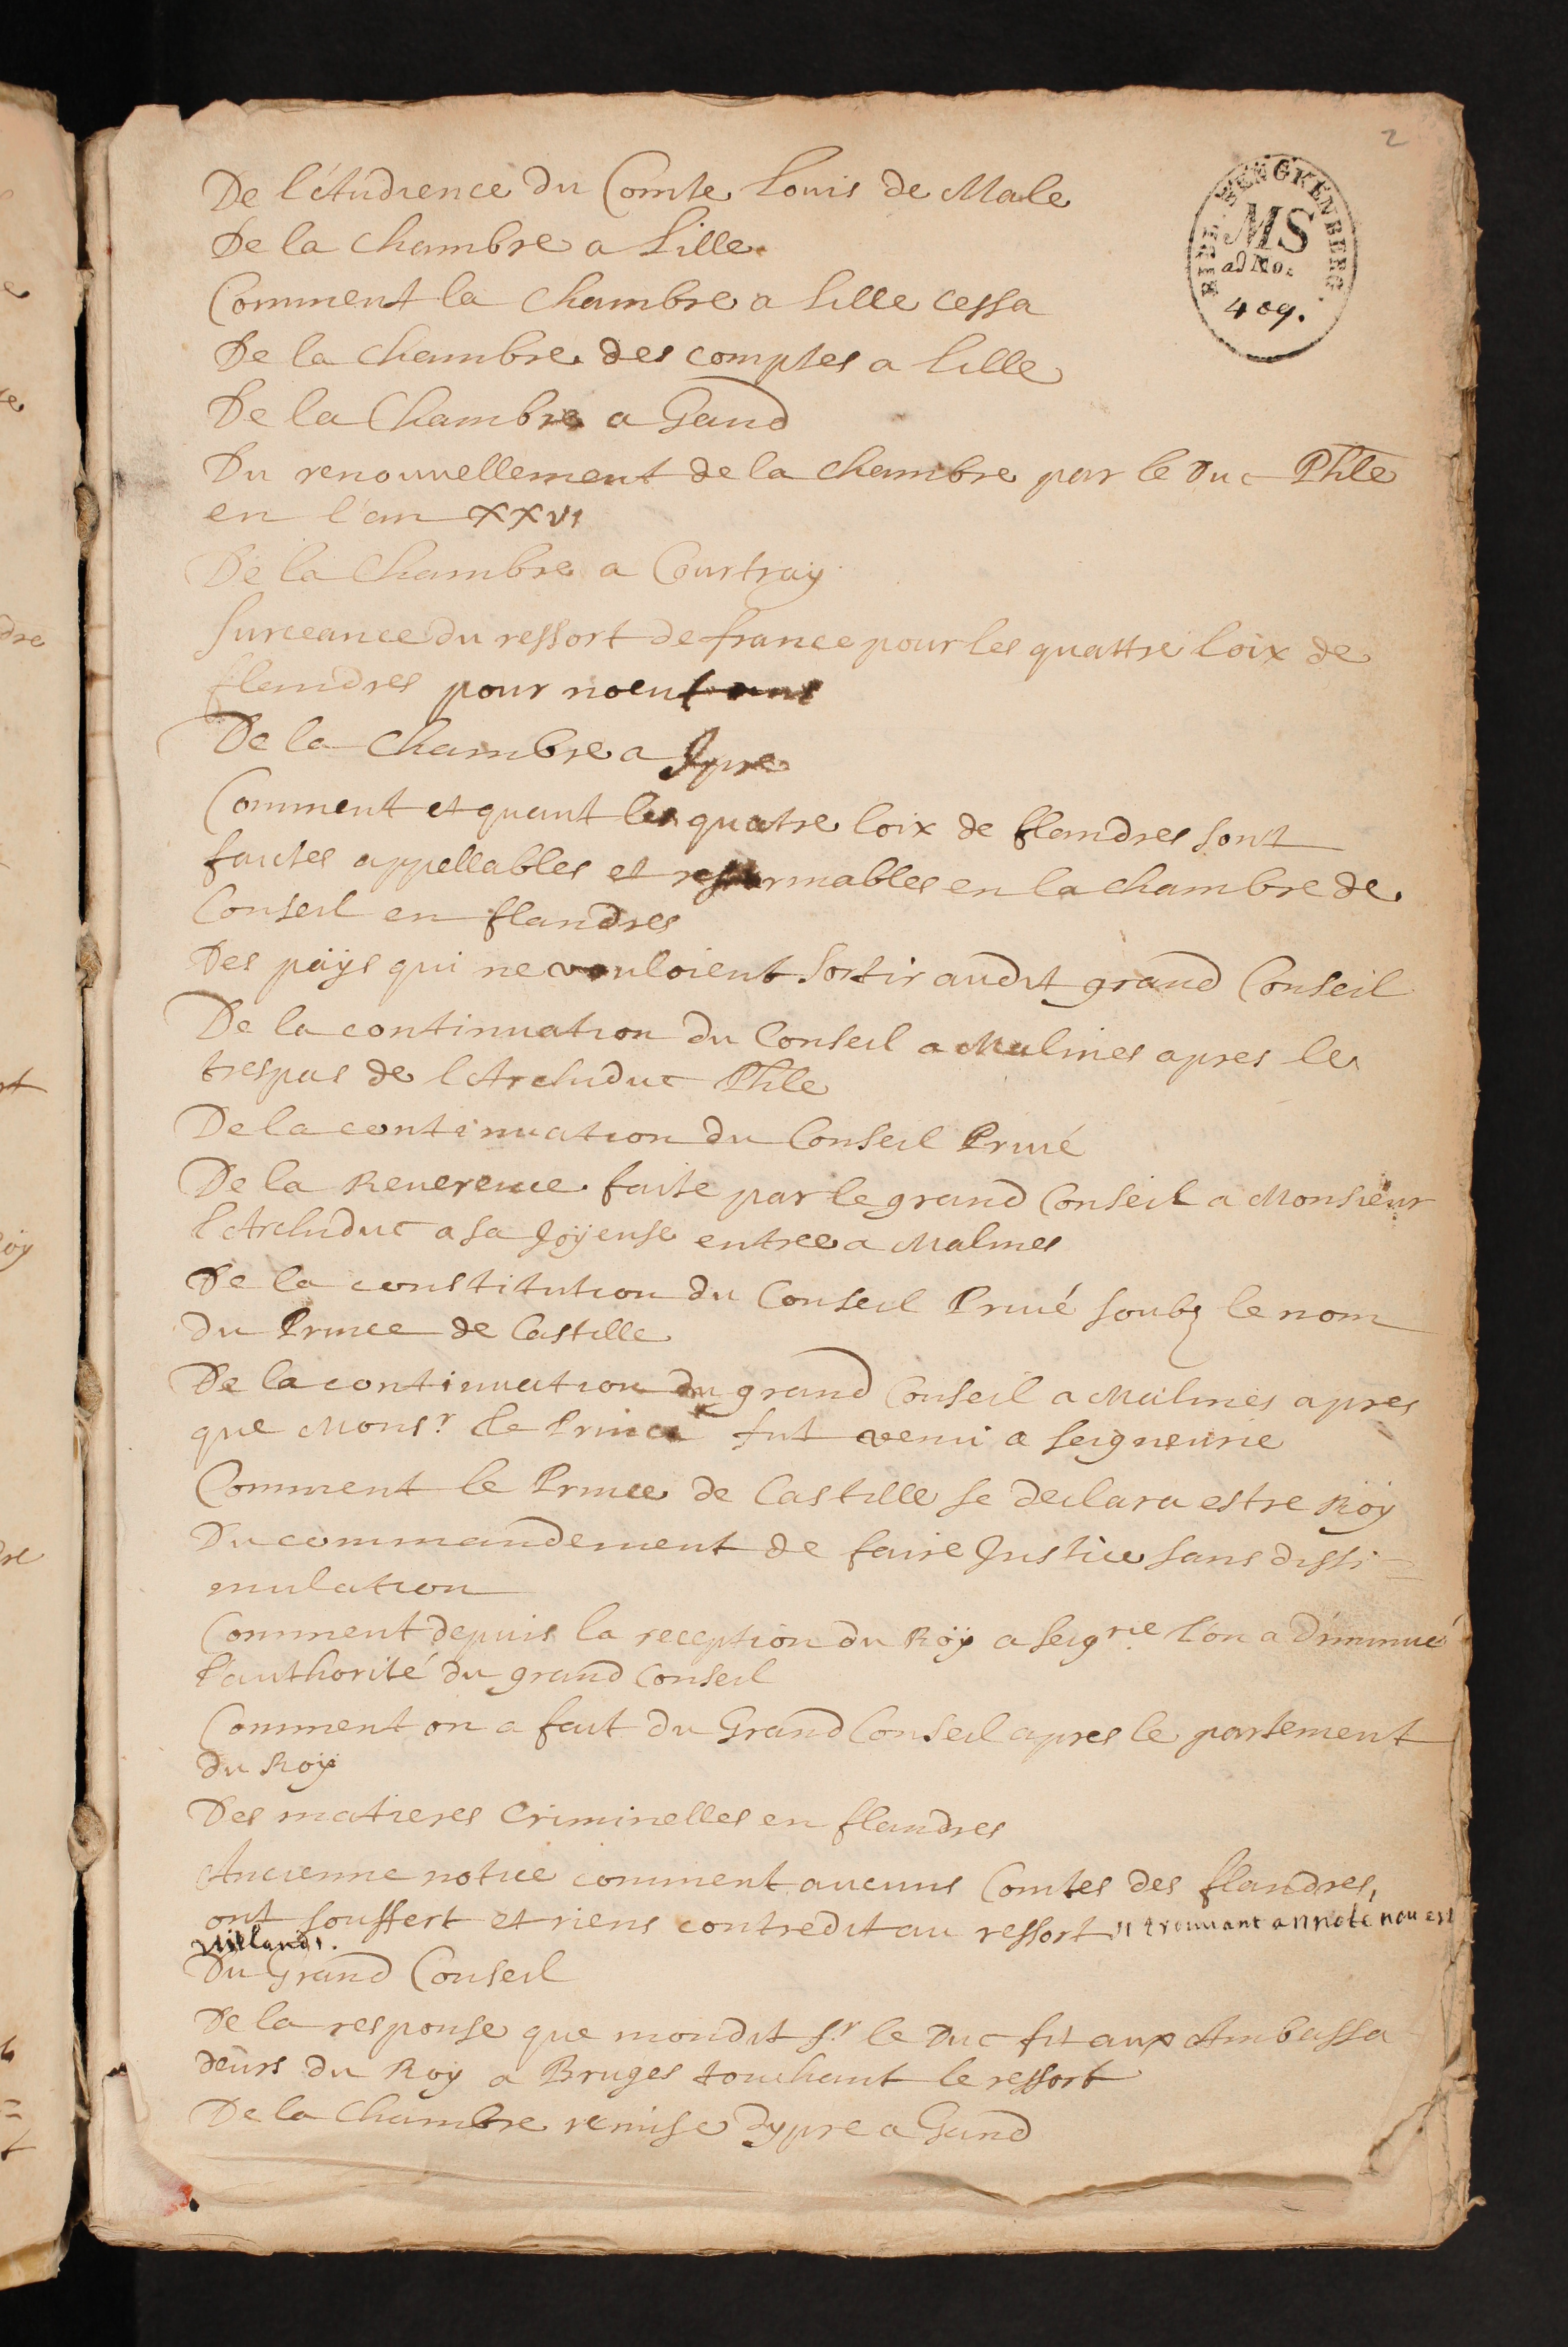 2
BIBL. SENGKENBERG.
MS
ad No.
409.
De l'Audience du Comte Louis de Male
De la chambre a Lille
Comment la chambre a Lille cessa
De la chambre des comptes a Lille
De la Chambre a Gand
Du renouvellement de la chambre par le Duc Phle
en l'an xxvi
De la Chambre a Courtray
Surceance du ressort de france pour les quattre loix de
flandres pour noeuf ans
De la chambre a Jpre
Comment et quant les quatre loix de flandres sont
faictes appellables et reformables en la chambre de
Conseil en flandres
Des paÿs qui ne vouloient sortir audit grand Conseil
De la continuation du Conseil a Malines apres le
trespas de l'Archiduc Phle
De la continuation du Conseil Privé
De la Reverence faite par le grand Conseil a Monsieur
l'Archiduc a sa Joÿeuse entree a Malines
De la constitution du Conseil Privé soubz le nom
du Prince de Castille
De la continuation du grand Conseil a Malines apres
que Monsr. le Prince fut venu a seigneurie
Comment le Prince de Castille se declara estre Roÿ
Du commandement de faire Justice sans dissi=
mulation
Comment depuis la reception du Roÿ a seigrie. l'on a Diminué
l'authorité du grand conseil
Comment on a fait du Grand Conseil apres le partement
du Roÿ
Des matieres Criminelles en flandres
Ancienne notice comment aucuns Comtes des flandres,
ont souffert et riens contredit au ressort trouvant annote
Du Grand Conseil
De la response que mondit Sr. le Duc fit aux Ambassa
deurs du Roy a Bruges touchant le ressort
De la Chambre remise d'ypre a Gand